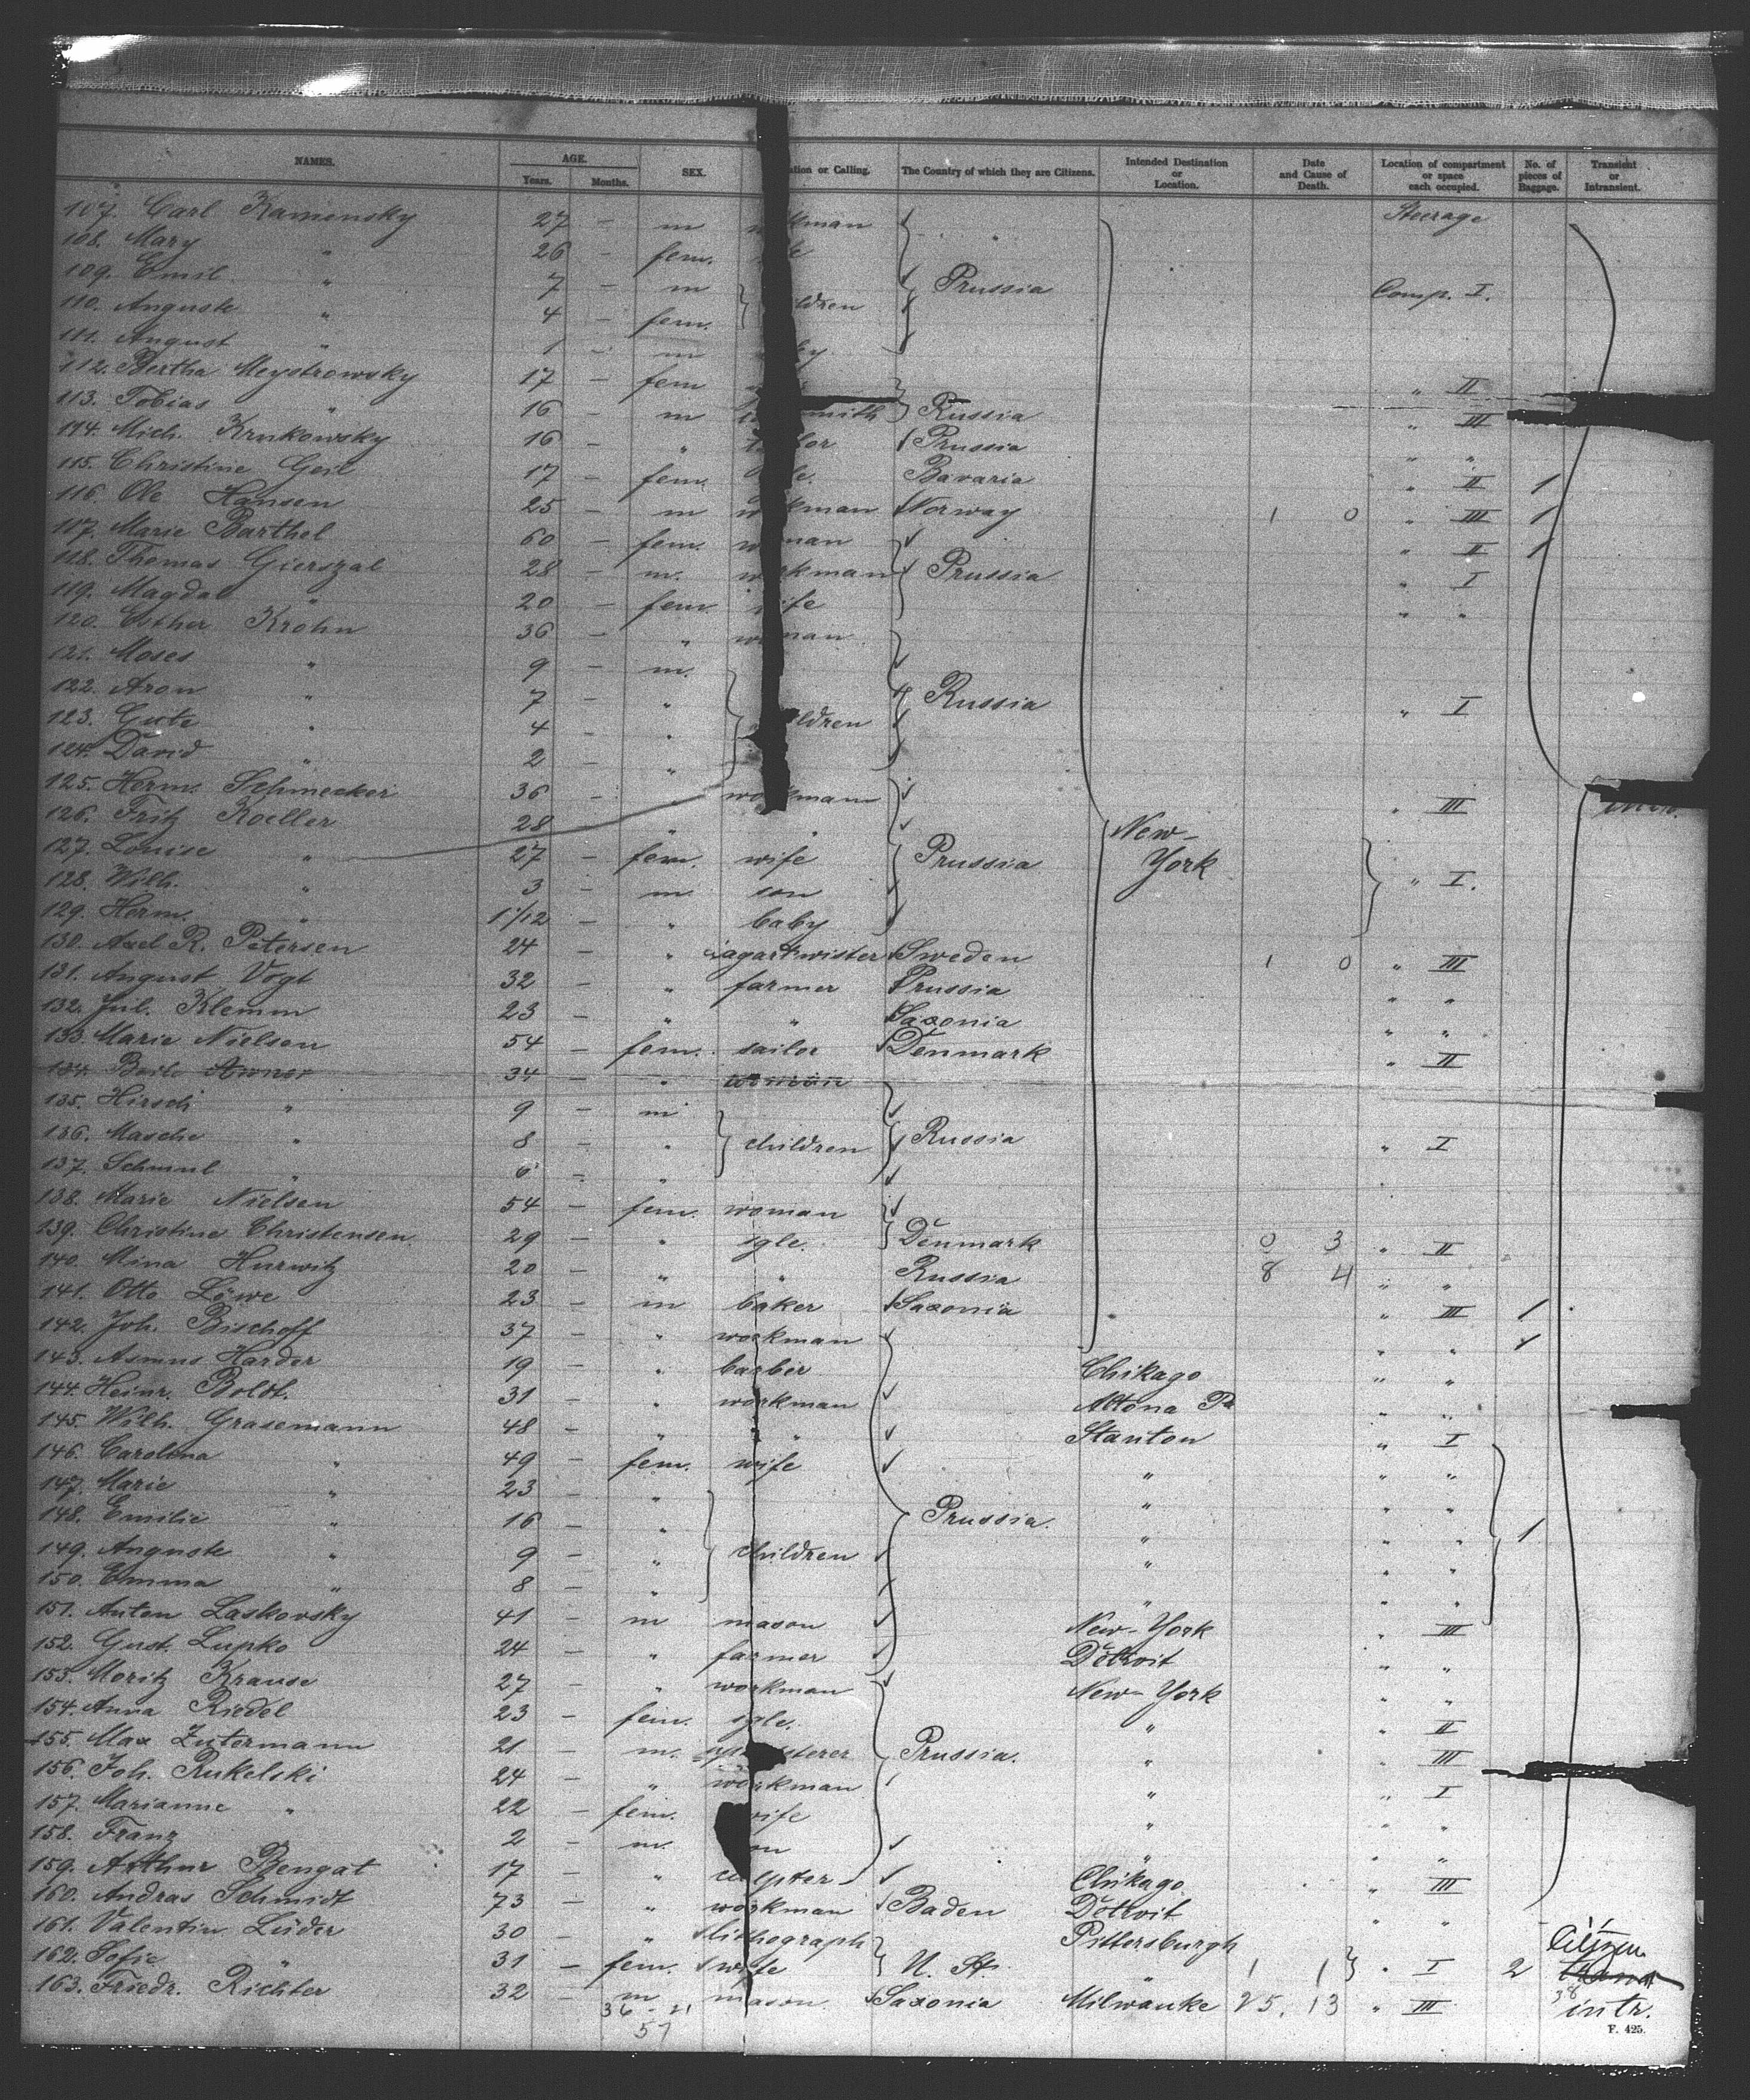 NAMES. AGE. Years. Months. SEX. ation or Calling. The Country of which they are Citizens. Intended Destination or Location. Date and Cause of Death. Location of compartment or space each occupied. No. of pieces of Baggage. Transient or Intransient.
107. Carl Kamensky 27 – m kman Steerage
108. Mary " 26 – fem.
109. Emil " 7 – m Prussia Comp. I.
110. Auguste " 4 – fem. ldren
111. August " 1 – m
112. Bertha Meystrowsky 17 – fem " II
113. Tobias " 16 – m smith Russia " III
114. Mich. Krukowsky 16 – " lor Prussia " "
115. Christine Geil 17 – fem. Bavaria " II 1
116. Ole Hansen 25 – m kman Norway 1 0 " III 1
117. Marie Barthel 60 – fem. woman " II 1
118. Thomas Gierszal 28 – m. workman Prussia " I
119. Magdal " 20 – fem. wife " "
120. Esther Krohn 36 – " woman
121. Moses " 9 – m.
122. Aron " 7 – " Russia " I
123. Gute " 4 – " ldren
124. David " 2 – "
125. Herm. Schmecker 36 – workmann " III
126. Fritz Koeller 28 " " New-
127. Louise " 27 – fem. wife Prussia York
128. Wilh. 3 – m. son " I.
129. Herm. " 1 1/12 – " baby
130. Axel R. Petersen 24 – " zagartwister Sweden 1 0 " III
131. August Vogt 32 – " farmer Prussia " "
132. Jul. Klemm 23 – " " Saxonia " "
133. Marie Nielsen 54 – fem. sailor Denmark " II
134. 34 – " woman
135. Hirsch " 9 – m
136. Masche " 8 – " children Russia " I
137. Schmul " 6 – "
138. Marie Nielsen 54 – fem. woman
139. Christine Christensen 29 – " sgle. Denmark 0 3 " II
140. Mina Hurwitz 20 – " " Russia 8 4 " "
141. Otto Löwe 23 – m baker Saxonia " III 1
142. Joh. Bischoff 37 – " workman " " 1
143. Asmus Harder 19 – " barbier Chikago " "
144. Heinr. Boldt. 31 – " workman Altona Pa " "
145. Wilh. Grasemann 48 – " " Stanton " I
146. Carolina " 49 – fem. wife " " "
147. Marie " 23 – " " " "
148. Emilie " 16 – " Prussia. " " " 1
149. Auguste " 9 – " children " " "
150. Emma " 8 – " " " "
151. Anton Laskovsky 41 – m mason New-York " III
152. Gust. Lupko 24 – " farmer Detroit " "
153. Moritz Krause 27 – " workman New-York " "
154. Anna Riedel 23 – fem. sgle. " " II
155. Max Zutermann 21 – m. Prussia. " " III
156. Joh. Rukelski 24 – " workman " " I
157. Marianne " 22 – fem. wife " " "
158. Franz 2 – m. " " "
159. Arthur Bengat 17 – " Chikago " III
160. Andras Schmidt 73 – " workman Baden Detroit " "
161. Valentin Lüder 30 – " lithograph Pittersburgh Citizen
162. Sofie " 31 – fem. wife U. St. " 1 1 " I 2
163. Friedr. Richter 32 – m mason. Saxonia Milwauke 25. 13 " III 38 intr.
36–21
57
F. 425.